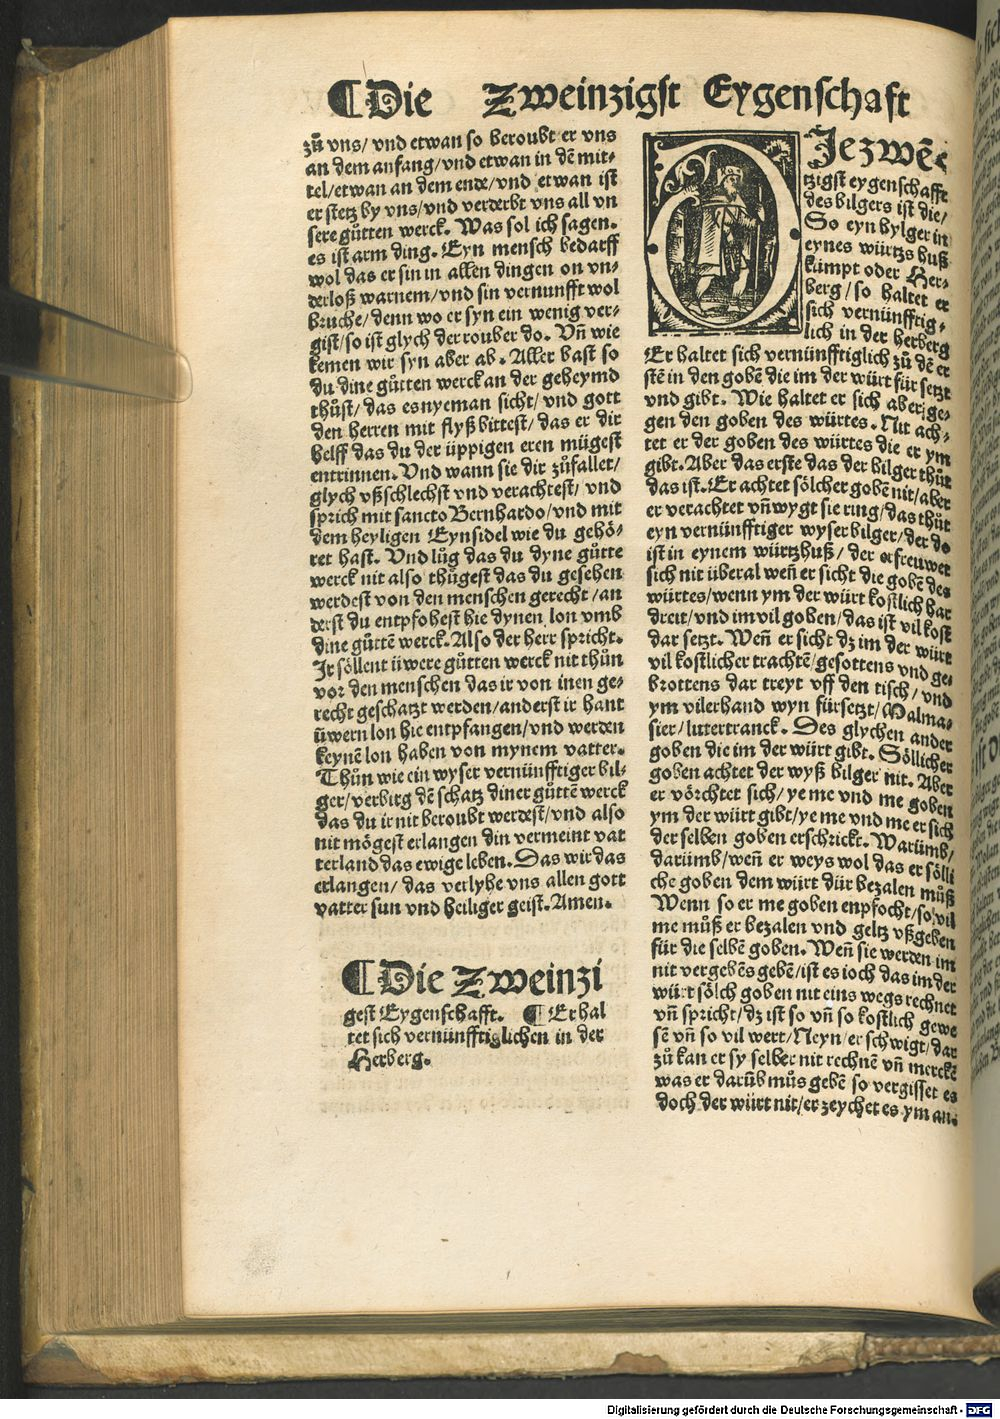 ¶Die Zweinzigst Eygenschafft
zů vns/ vnd etwan so beroubt er vns
an dem anfang/vnd etwan in dē mit⸗
tel/etwan an dem ende/vnd etwan ist
er stetz by vns/vnd verderbt vns all vn
sere gůtten werck. Was sol ich sagen.
es ist arm ding. Eyn mensch bedarff
wol das er sin in allen dingen on vn⸗
derloß warnem/vnd sin vernunfft wol
bruche/denn wo er syn ein wenig ver⸗
gist/so ist glych der rouber do. Vñ wie
kemen wir syn aber ab. Aller bast so
du dine gůtten werck an der geheymd
thůst/das es nyeman sicht/vnd gott
den herren mit flyß bittest/das er dir
helff das du der üppigen eren mügest
entrinnen. Vnd wann sie dir zůfallet/
glych vßschlechst vnd verachtest/ vnd
sprich mit sancto Bernhardo/vnd mit
dem heyligen Eynsidel wie du gehö⸗
ret hast. Vnd lůg das du dyne gůtte
werck nit also thůgest das du gesehen
werdest von den menschen gerecht/an
derst du entpfohest hie dynen lon vmb
dine gůttē werck. Also der herr spricht.
Ir söllent üwere gůtten werck nit thůn
vor den menschen das ir von inen ge⸗
recht geschatzt werden/anderst ir hant
üwern lon hie entpfangen/vnd werden
keynē lon haben von mynem vatter.
Thůn wie ein wyser vernünfftiger bil⸗
ger/verbirg dē schatz diner gůttē werck
das du ir nit beroubt werdest/vnd also
nit mögest erlangen din vermeint vat
terland das ewige leben. Das wir das
erlangen/ das verlyhe vns allen gott
vatter sun vnd heiliger geist. Amen.
¶Die Zweinzi
gest Eygenschafft. ¶Er hal
tet sich vernünfftiglichen in der
Herberg.
DJe zwē⸗
tzigst eygenschafft
des bilgers ist die/
So eyn bylger in
eynes würtzs huß
kümpt oder Her⸗
berg/so haltet er
sich vernünfftig⸗
lich in der herberg
Er haltet sich vernünfftiglich zů dē er
stē in den gobē die im der würt für setzt
vnd gibt. Wie haltet er sich aber ge⸗
gen den goben des würtes. Nit ach⸗
tet er der goben des würtes die er ym
gibt. Aber das erste das der bilger thůt
das ist. Er achtet sölcher gobē nit/aber
er verachtet vñ wygt sie ring/das thůt
eyn vernünfftiger wyser bilger/der do
ist in eynem würtzhuß/ der erfreuwet
sich nit überal weñ er sicht die gobē des
würtes/wenn ym der würt kostlich har
dreit/vnd im vil goben/das ist vil kost
dar setzt. Weñ er sicht dz im der würt
vil kostlicher trachtē/gesottens vnd ge⸗
brottens dar treyt vff den tisch/ vnd
ym vilerhand wyn fürsetzt/Malma⸗
sier/lutertranck. Des glychen ander
goben die im der würt gibt. Söllicher
goben achtet der wyß bilger nit. Aber
er vörchtet sich/ye me vnd me goben
ym der würt gibt/ye me vnd me er sich
der selben goben erschrickt. Warümb/
darümb/weñ er weys wol das er sölli
che goben dem würt dür bezalen můß
Wenn so er me goben enpfocht/so vil
me můß er bezalen vnd geltz vßgeben
für die selbē goben. Weñ sie werden im
nit vergebēs gebē/ist es ioch das im der
würt sölch goben nit eins wegs rechnet
vñ spricht/dz ist so vñ so kostlich gewe
sē vñ so vil wert/Neyn er schwigt/dar
zů kan er sy selber nit rechnē vñ merckē
was er darüb můs gebē so vergisset es
doch der würt nit/er zeychet es ym an.
Digitalisierung gefördert durch die Deutsche Forschungsgemeinschaft - DFG